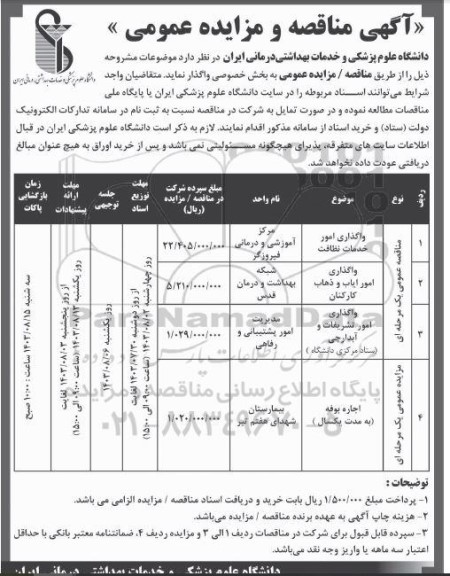 «آگهی مناقصه و مزایده عمومی»
دانشگاه علوم پزشکی و خدمات بهداشتی درمانی ایران
دانشگاه علوم پزشکی و خدمات بهداشتی‌درمانی ایران در نظر دارد موضوعات مشروحه
ذیل را از طریق مناقصه / مزایده عمومی به بخش خصوصی واگذار نماید. متقاضیان واجد
شرایط می‌توانند اسناد مربوطه را در سایت دانشگاه علوم پزشکی ایران یا پایگاه ملی
مناقصات مطالعه نموده و در صورت تمایل به شرکت در مناقصه نسبت به ثبت نام در سامانه تدارکات الکترونیک
دولت (ستاد) و خرید اسناد از سامانه مذکور اقدام نمایند. لازم به ذکر است دانشگاه علوم پزشکی ایران در قبال
اطلاعات سایت های متفرقه، پذیرای هیچگونه مسئولیتی نمی باشد و پس از خرید اوراق به هیچ عنوان مبالغ
دریافتی عودت داده نخواهد شد.
ردیف نوع موضوع نام واحد مبلغ سپرده شرکت در مناقصه / مزایده (ریال) مهلت توزیع اسناد جلسه توجیهی مهلت ارائه پیشنهادات زمان بازگشایی پاکات
مناقصه عمومی یک مرحله ای
۱ واگذاری امور خدمات نظافت مرکز آموزشی و درمانی فیروزگر ۲۲/۴۰۵/۰۰۰/۰۰۰
۲ واگذاری امور ایاب و ذهاب کارکنان شبکه بهداشت و درمان قدس ۵/۲۱۰/۰۰۰/۰۰۰
۳ واگذاری امور تشریفات و آبدارچی (ستاد مرکزی دانشگاه) مدیریت امور پشتیبانی و رفاهی ۱/۰۲۹/۰۰۰/۰۰۰
مزایده عمومی یک مرحله ای
۴ اجاره بوفه (به مدت یکسال) بیمارستان شهدای هفتم تیر ۱/۰۲۰/۰۰۰/۰۰۰
از روز دوشنبه ۱۴۰۳/۰۷/۳۰ لغایت
روز چهارشنبه ۱۴۰۳/۰۸/۰۲ (ساعت ۰۹:۰۰ الی ۱۵:۰۰)
روز یکشنبه ۱۴۰۳/۰۸/۰۶
از روز پنجشنبه ۱۴۰۳/۰۸/۰۳ لغایت
روز یکشنبه ۱۴۰۳/۰۸/۱۳ (ساعت ۰۹:۰۰ الی ۱۵:۰۰)
سه شنبه ۱۴۰۳/۰۸/۱۵ ساعت: ۱۰:۰۰ صبح
ParsNamadData
پایگاه اطلاع رسانی مناقصه
۰۲۱-۸۸۳۴۹۶۷۰
توضیحات :
۱- پرداخت مبلغ ۱/۵۰۰/۰۰۰ ریال بابت خرید و دریافت اسناد مناقصه / مزایده الزامی می باشد.
۲- هزینه چاپ آگهی به عهده برنده مناقصه / مزایده می‌باشد.
۳- سپرده قابل قبول برای شرکت در مناقصات ردیف ۱ الی ۳ و مزایده ردیف ۴، ضمانتنامه معتبر بانکی با حداقل
اعتبار سه ماهه یا واریز وجه نقد می‌باشد.
دانشگاه علوم پزشکی و خدمات بهداشتی درمانی ایران